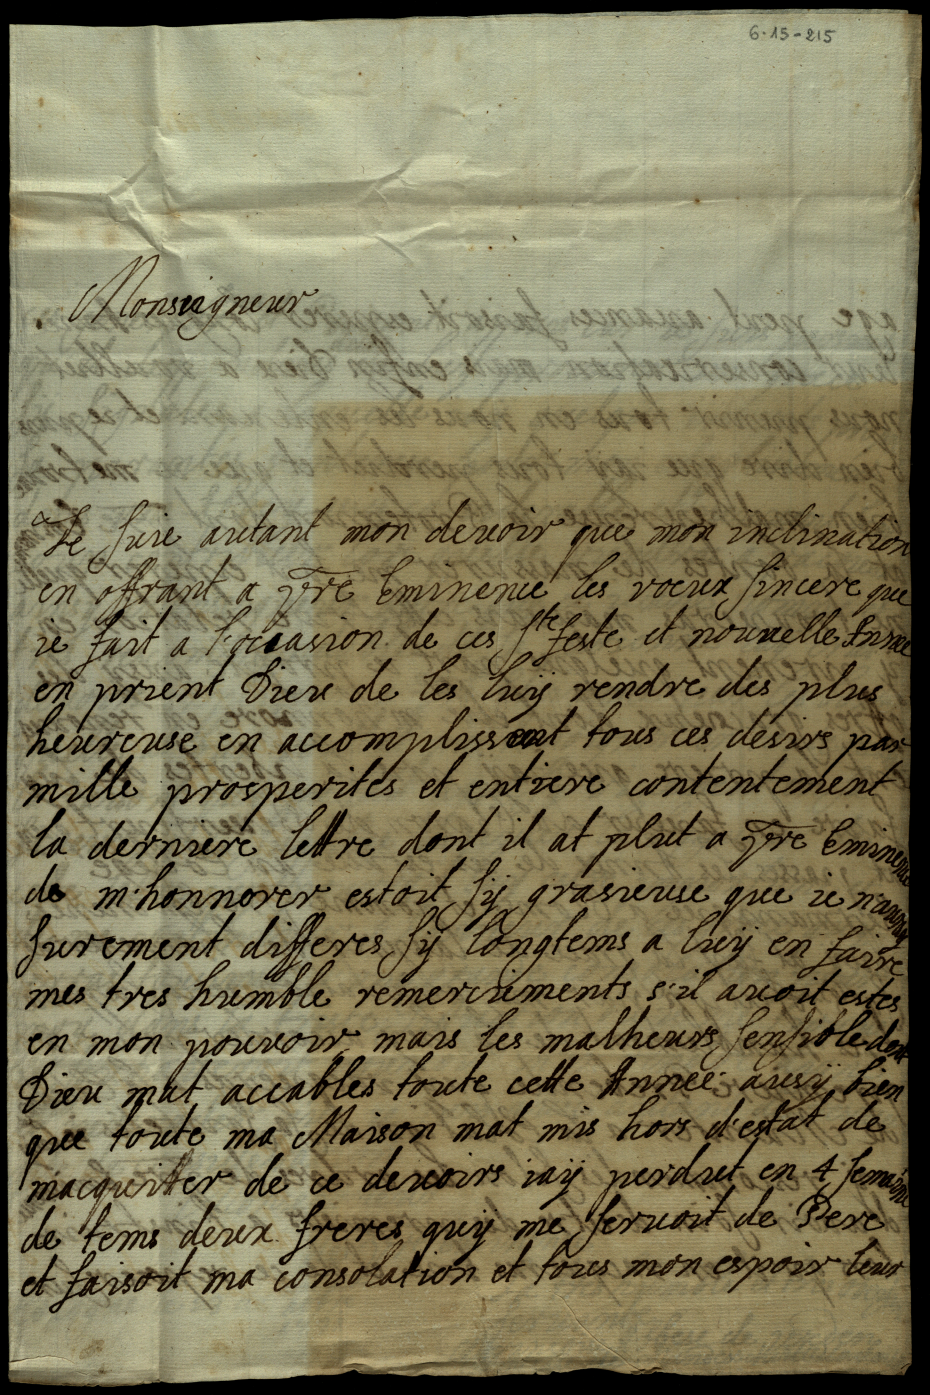 6.15-215
Monseigneur
Je suie autant mon devoir que mon inclination
en offrant a vre Eminence les voeux sincere que
ie fait a l'occasion de ces Ste feste et nouvelle Année
en prient Dieu de les luÿ rendre des plus
heureuse en accomplissent tous ces desirs par
mille prosperites et entiere contentement
la derniere lettre dont il at plut a vre Eminence
de m'honnorer estoit sÿ grasieuse que ie n'auraÿ
surement differes sÿ longtems a luÿ en faire
mes tres humble remerciments s'il avoit estes
en mon pouvoir mais les malheurs sensible dont
Dieu mat accables toute cette Année ausÿ bien
que toute ma Maison mat mis hors d'estat de
macquitter de ce devoirs iaÿ perdut en 4 semaine
de tems deux freres quÿ me servoit de Pere
et faisoit ma consolation et tous mon espoir leur